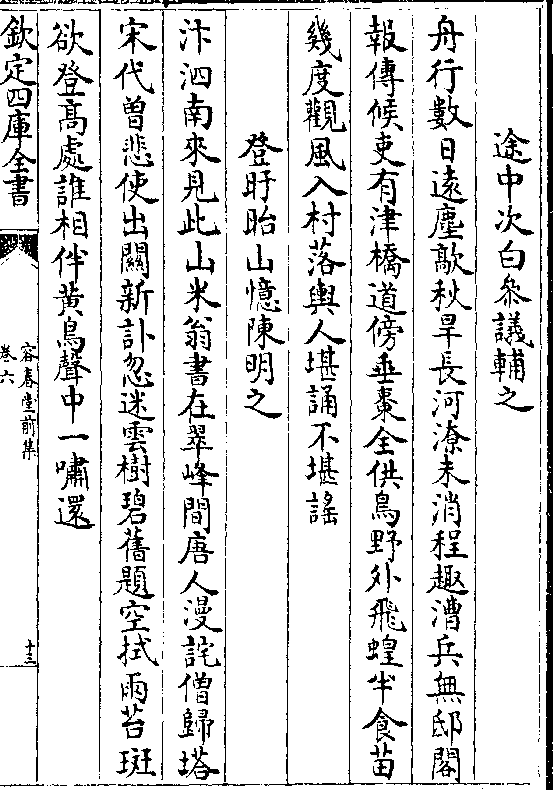 途中次白叅議輔之
舟行數日遠塵歊秋旱長河潦未消程趣漕兵無邸閣
報傳候吏有津橋道傍垂棗全供鳥野外飛蝗半食苗
幾度觀風入村落輿人堪誦不堪謡
登盱眙山憶陳明之
汴泗南來見此山米翁書在翠峰間唐人漫詫僧歸塔
宋代曽悲使出關新訃忽迷雲樹碧舊題空拭雨苔斑
欲登髙處誰相伴黃鳥聲中一嘯還
欽定四庫全書
容春堂前集
卷六
十三